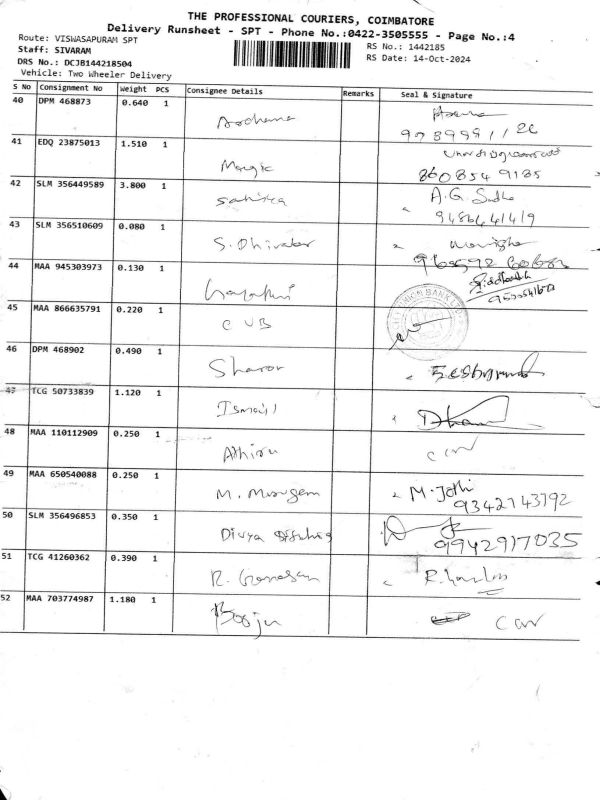 THE PROFESSIONAL COURIERS, COIMBATORE
Delivery Runsheet - SPT - Phone No.:0422-3505555 - Page No.:4
Route: VISWASAPURAM SPT
RS No.: 1442185
Staff: SIVARAM
RS Date: 14-Oct-2024
DRS No.: DCJB144218504
Vehicle: Two Wheeler Delivery
S No Consignment No Weight PCS Consignee Details Remarks Seal & Signature
40 DPM 468873 0.640 1
Aadhana
41 EDQ 23875013 1.510 1
Magic
860854 9185
42 SLM 356449589 3.800 1
A.G. Sudha
43 SLM 356510609 0.080 1
S. Dhivakar
44 MAA 945303973 0.130 1
Gayathri
Siddharth
45 MAA 866635791 0.220 1
CUB
UNION BANK
46 DPM 468902 0.490 1
Sharon
47 TCG 50733839 1.120 1
Ismail
48 MAA 110112909 0.250 1
Athira
49 MAA 650540088 0.250 1
M. Murugan M. Jothi
9342143792
50 SLM 356496853 0.350 1
Divya
9942917035
51 TCG 41260362 0.390 1
R. Ganesan
52 MAA 703774987 1.180 1